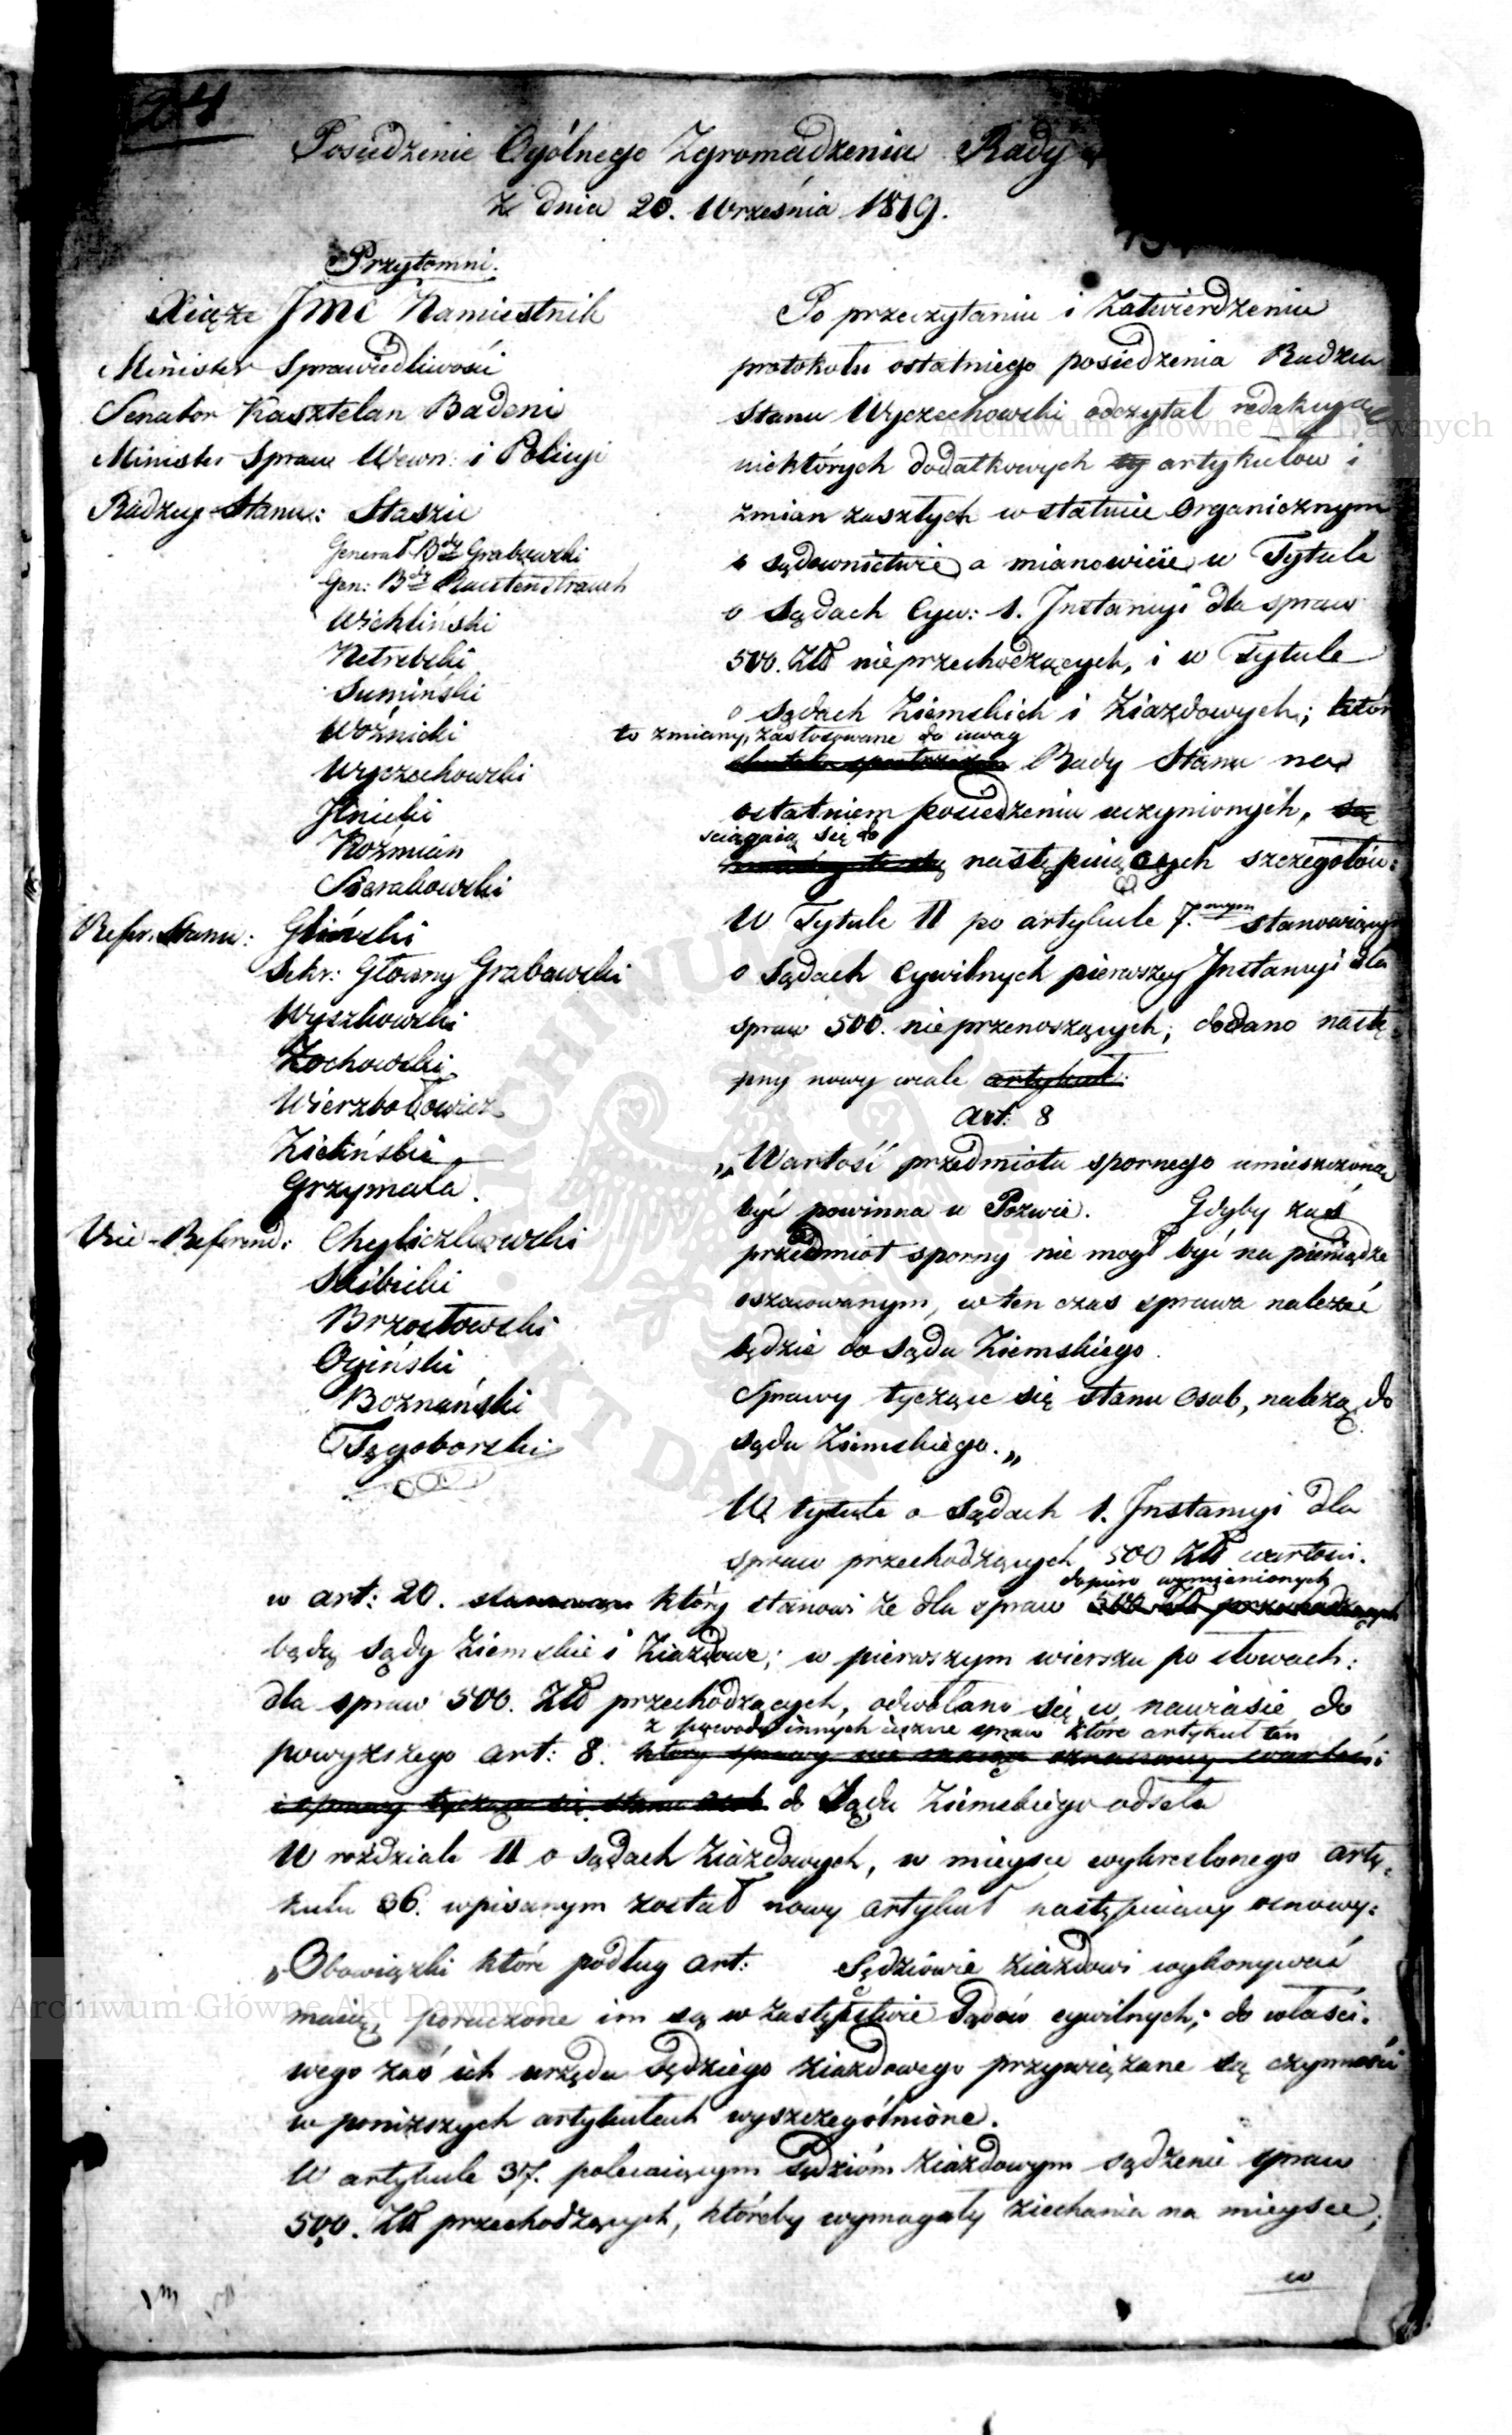 24
Posiedzenie Ogólnego Zgromadzenia Rady
z dnia 20. Września 1819.
Przytomni.
Xiąże Jmć Namiestnik
Minister Sprawiedliwości
Senator Kasztelan Badeni
Minister Spraw Wewn: i Policyi
Radzcy Stanu: Staszic
Generał Bdy Grabowski
Gen: Bdy Rautenstrauch
Wichliński
Netrebski
Sumiński
Woźnicki
Wyczechowski
Jlnicki
Koźmian
Sierakowski
Refer. Stanu: Gliński
Sekr: Główny Grabowski
Wyszkowski
Zochowski
Wierzbołowicz
Zieliński
Grzymała.
Vice-Referend: Chyliczkowski
Skibicki
Brzostowski
Ogiński
Boznański
Tęgoborski
Po przeczytaniu i zatwierdzeniu
protokołu ostatniego posiedzenia Radzca
Stanu Wyczechowski odczytał redakcyą
niektórych dodatkowych artykułów i
zmian zaszłych w statucie Organicznym
o sądownictwie, a mianowicie w Tytule
o Sądach Cyw: 1. Jnstancyi dla spraw
500. Złł nieprzechodzących, i w Tytule
o Sądach Ziemskich i Ziazdowych; któ
to zmiany, zastosowane do uwag
Rady Stanu na
ostatniem posiedzeniu uczynionych, są
ściągaią się do
następuiących szczegółów:
W Tytule II po artykule 7.mym stanowiący
o Sądach Cywilnych pierwszey Jnstancyi dla
spraw 500. nieprzenoszących; dodano nastę-
pny nowy wcale artykuł:
Art: 8
„Wartość przedmiotu spornego umieszczona
być powinna w Pozwie. Gdyby zaś
przedmiot sporny nie mogł być na pieniądze
oszacowanym, w ten czas sprawa należeć
będzie do Sądu Ziemskiego.
Sprawy tyczące się stanu Osob, należą do
Sądu Ziemskiego.„
W tytule o Sądach 1. Jnstancyi dla
spraw przechodzących 500 Złł wartości.
dopiero wymienionych
w art: 20. który stanowi że dla spraw 500 złł przechodzących
będą Sądy Ziemskie i Ziazdowe; w pierwszym wierszu po słowach:
dla spraw 500. Złł przechodzących, odwołano się w nawiasie do
z powodu innych ieszcze spraw które artykuł ten
powyższego art: 8.
i sprawy tyczące się stanu Osob do Sądu Ziemskiego odseła
W rozdziale II o Sądach Ziazdowych, w mieysce wykreslonego arty-
kułu 36. wpisanym został nowy artykuł następuiącey osnowy:
„Obowiązki które podług art: Sędziowie Ziazdowi wykonywać
maią, poruczone im są w zastępstwie Sądów cywilnych; do właści-
wego zaś ich urzędu Sędziego Ziazdowego przywiązane są czynności
w poniższych artykułach wyszczególnione.
W artykule 37. polecaiącym Sędzióm Ziazdowym sądzenie spraw
500. Złł przechodzących, któreby wymagały ziechania na mieysce,
w
Archiwum Główne Akt Dawnych
Archiwum Główne Akt Dawnych
ARCHIWUM GŁÓWNE AKT DAWNYCH